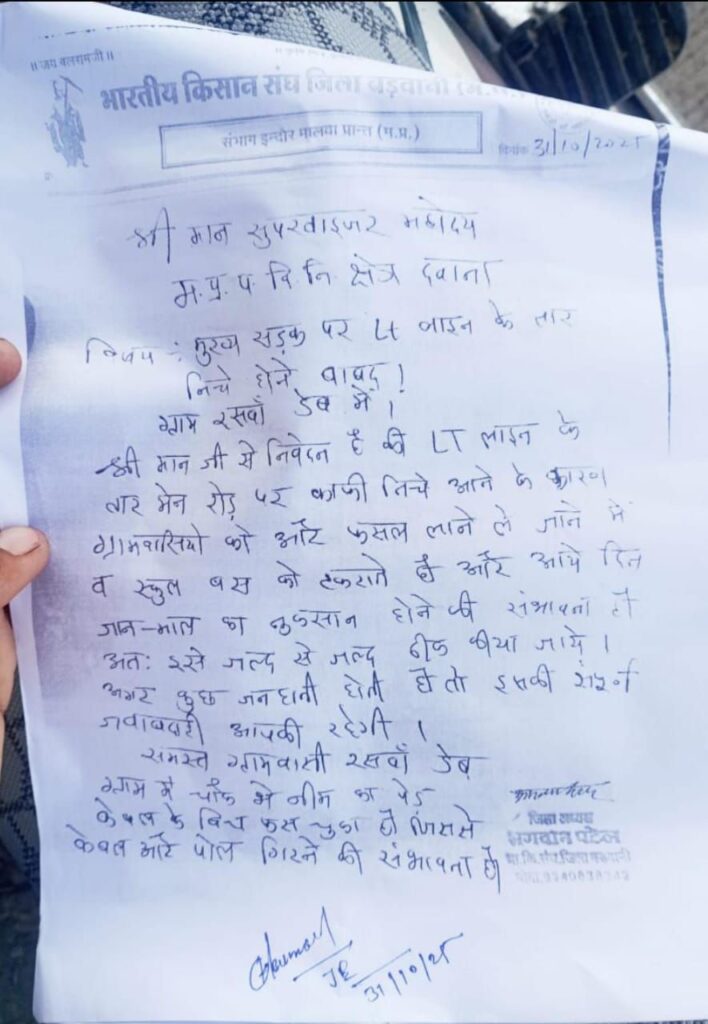 ॥ जय बलरामजी॥
भारतीय किसान संघ जिला बड़वानी (म.प्र.
संभाग इन्दौर मालवा प्रान्त (म.प्र.)
दिनांक 31/10/2025
श्री मान सुपरवाइजर महोदय
म.प्र.प.वि.नि. क्षेत्र दवाना
विषय : मुख्य सड़क पर Lt लाइन के तार
निचे होने बाबद !
ग्राम रसवाँ डेब में ।
श्री मान जी से निवेदन है की LT लाइन के
तार मेन रोड़ पर काफी निचे आने के कारण
ग्रामवासियो को और फसल लाने ले जाने में
व स्कुल बस को टकराते है और आये दिन
जान-माल का नुकसान होने की संभावना है
अतः इसे जल्द से जल्द ठीक कीया जाये ।
अगर कुछ जनहानी होती है तो इसकी संपूर्ण
जवाबदारी आपकी रहेगी ।
समस्त ग्रामवासी रसवाँ डेब
ग्राम में चौक में नीम का पेड़
केबल के बिच फस चुका है जिससे
केबल और पोल गिरने की संभावना है।
जिला अध्यक्ष
भगवान पटेल
भा.कि.संघ जिला बड़वानी
JE
31/10/25